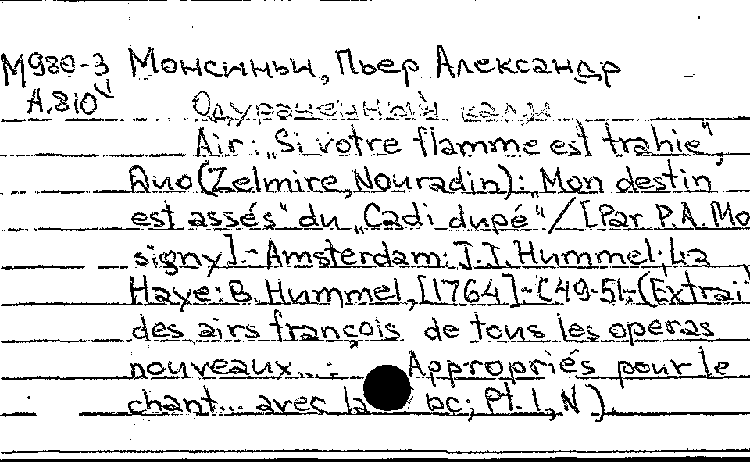 М980-3 Монсиньи, Пьер Александр
А.810 Одураченный кади
Air: „Si votre flamme est trahie“,
Duo (Zelmire, Nouradin): „Mon destin
est assés“ du „Cadi dupé“/[Par P.A. Mo
signy].- Amsterdam: J.J. Hummel; La
Haye: B. Hummel, [1764].- C 49-51.-(Extrai
des airs françois de tous les operas
nouveaux...: Appropriés pour le
chant... avec la bc; Pt. 1, N ).